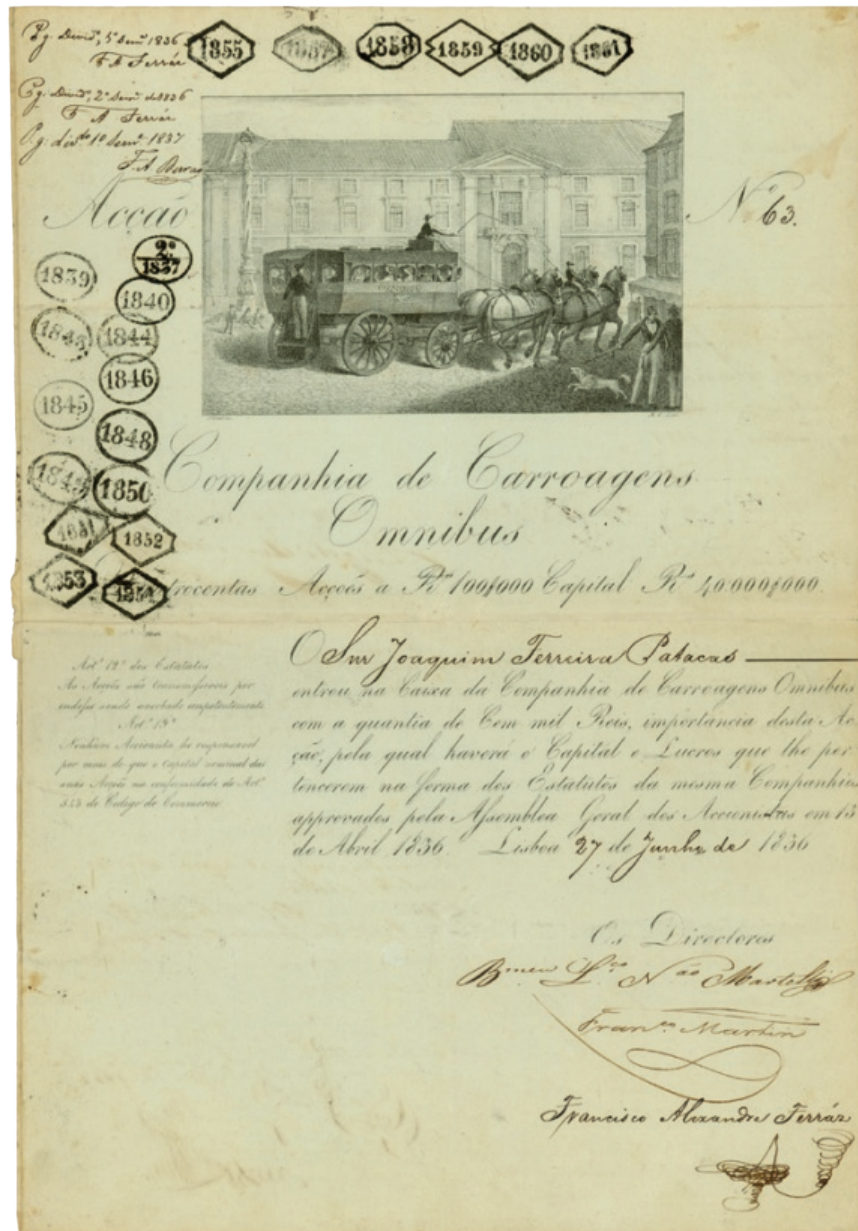 Pg. Divid.º, 1º Sem.e 1836
F A Ferrár
Pg. Divid.º, 2º Sem.e de 1836
F A Ferrár
Pg. div.do 1º Sem.e 1837
F. A.
1855
1857
1858
1859
1860
1861
Acção
Nº 63.
1839
2º
1837
1840
1843
1844
1846
1845
1848
1849
1850
1851
1852
1853
1854
Companhia de Carroagens
Omnibus
trocentas Acções a Rs 100$000 Capital Rs 40:000$000
Artº 12º dos Estatutos
As Acções são transmissiveis por
endosso sendo averbado competentemente
Artº 13º
Nenhum Accionista he responsavel
por mais do que o Capital nominal das
suas Acções na conformidade do Artº
do Codigo do Commercio
O Snr Joaquim Ferreira Patacas
entrou na Caixa da Companhia de Carroagens Omnibus
com a quantia de Cem mil Reis, importancia desta Ac-
ção, pela qual haverá o Capital e Lucros que lhe per-
tencerem na forma dos Estatutos da mesma Companhia
approvados pela Assemblea Geral dos Accionistas em 13
de Abril 1836. Lisboa 27 de Junho de 1836
Os Directores
Fran.co Martin
Francisco Alexandre Ferrár